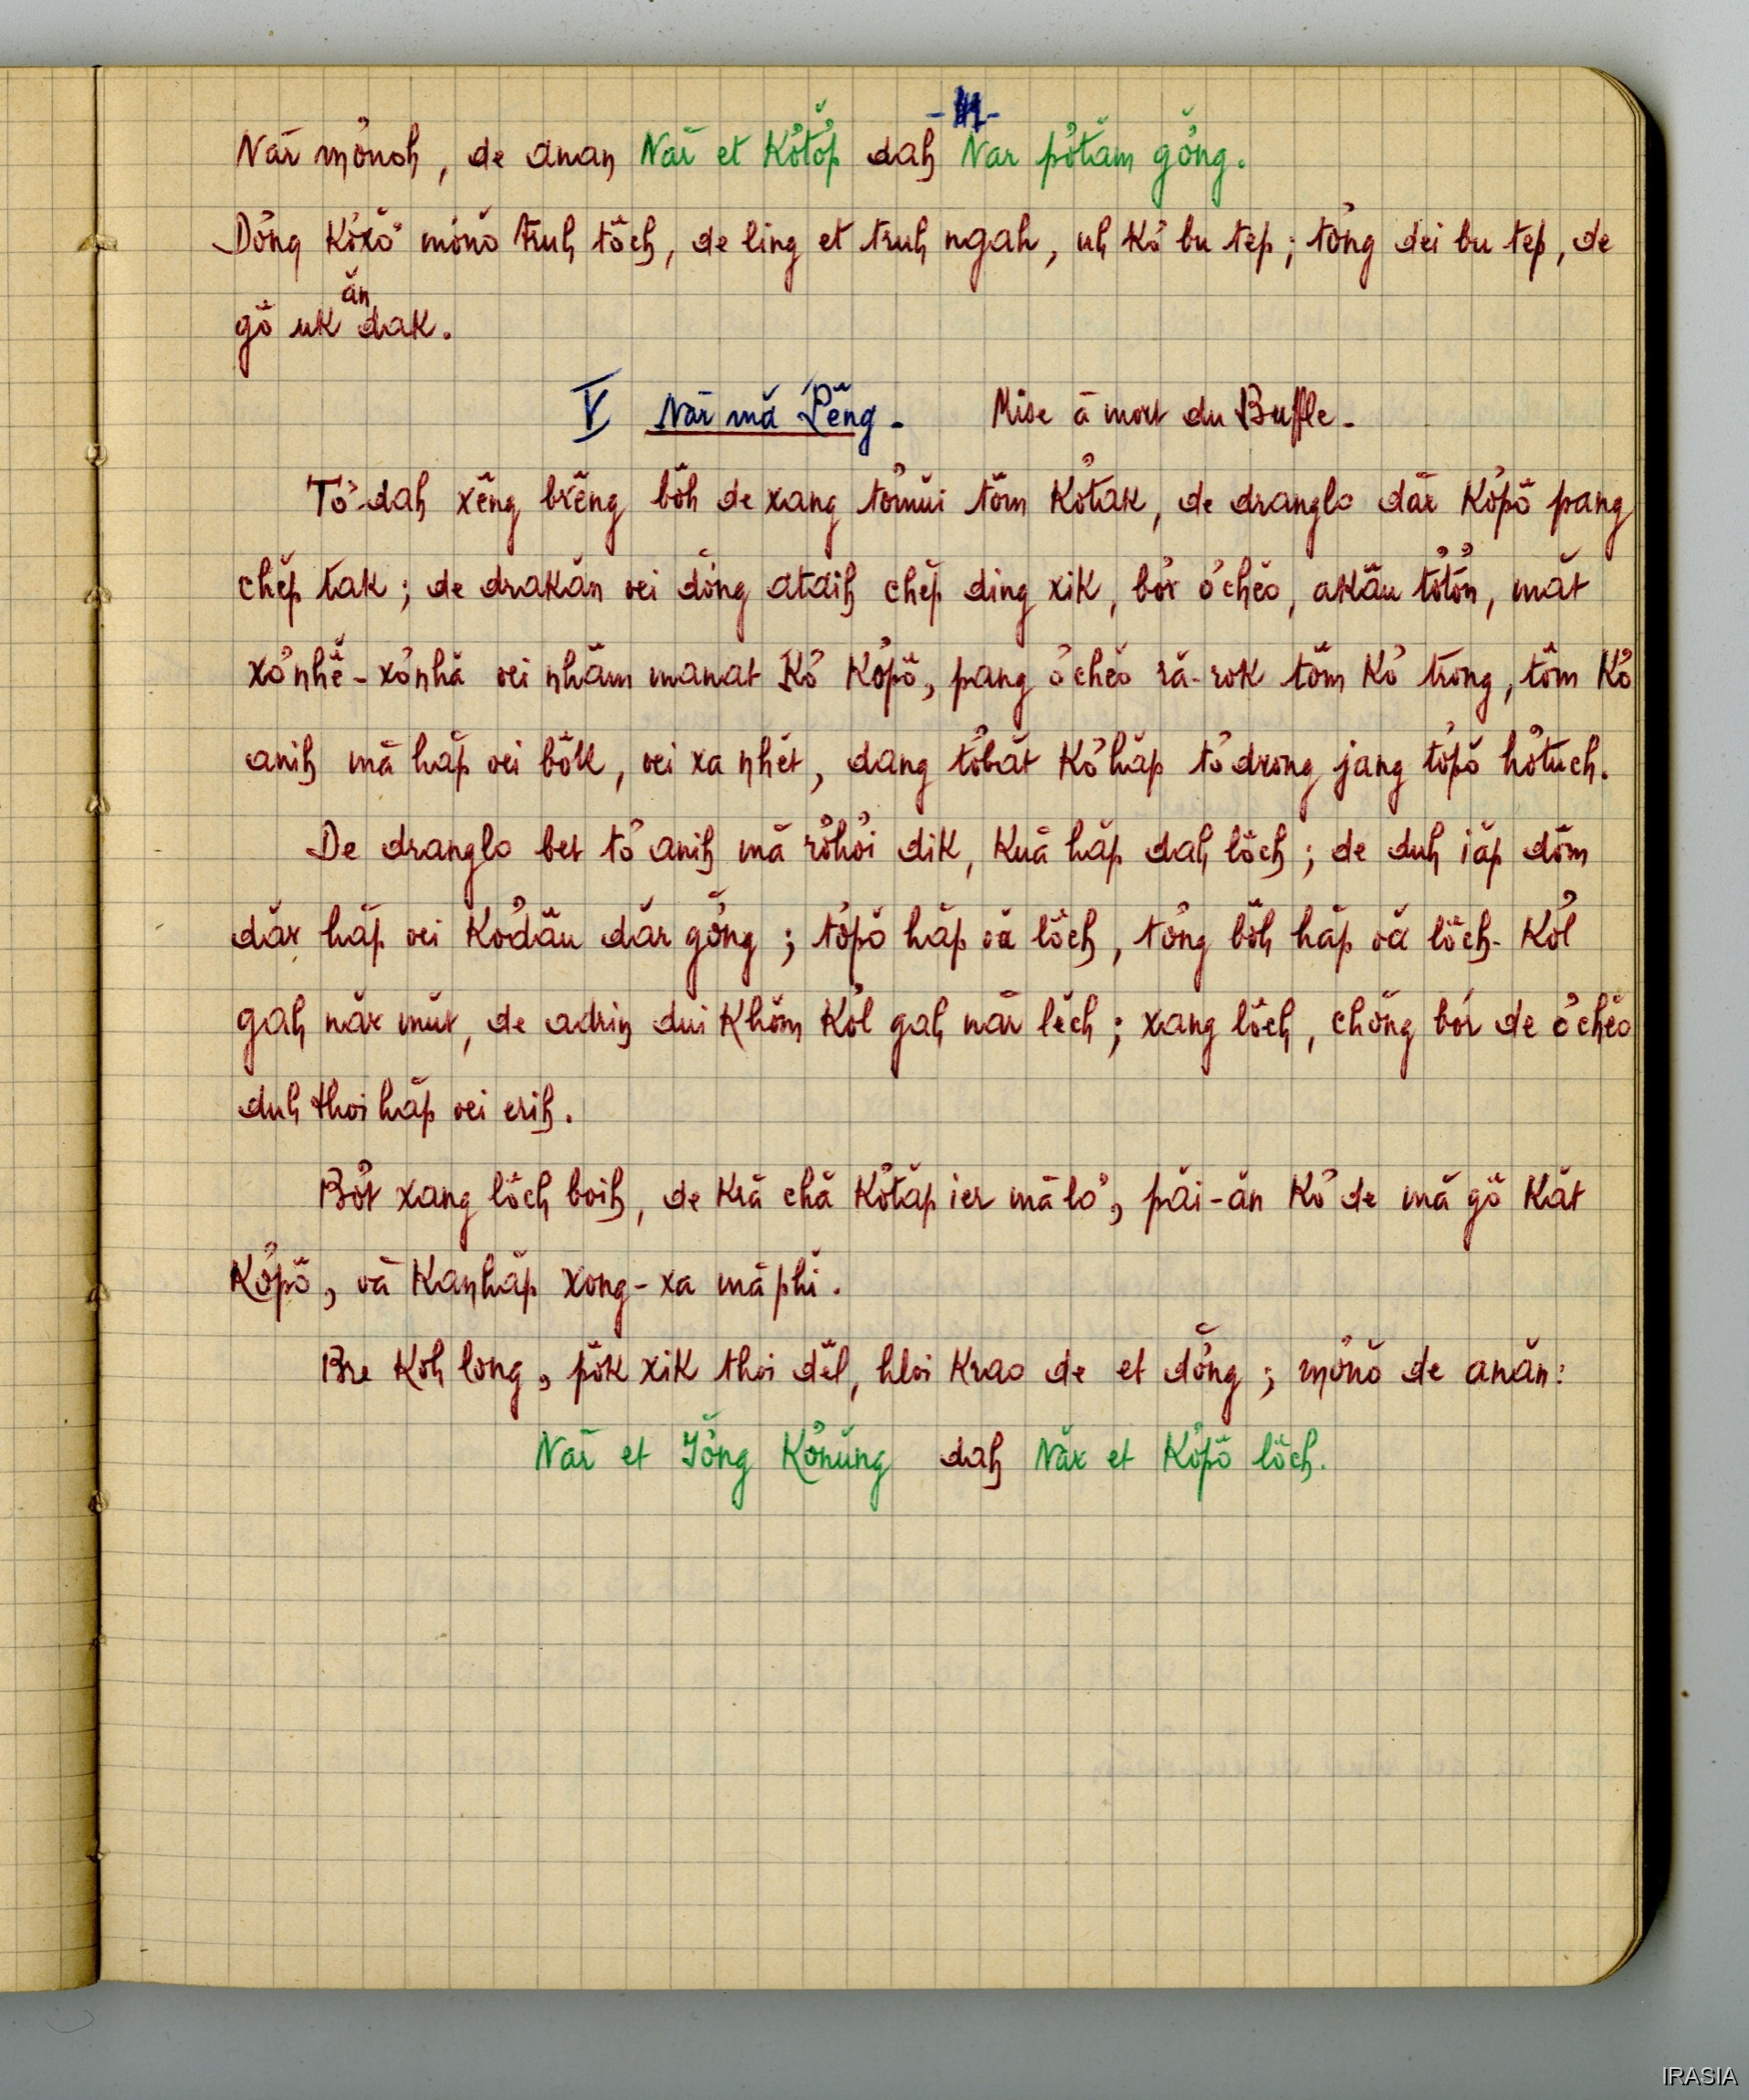 Năr mơ̆nơh, de anaņ Năr et Kơ̆tơ̆p dah Năr pơtăm gơ̆ng.
Dơ̆ng Kơxơ̆ mơ̆nơ̆ truh tôch, de ling et truh ngah, uh kơ̆ bu tep; tơ̆ng dei bu tep, de
ăn
gô uk dak.
V Năr mă Pêng - Mise à mort du Buffle -
Tơ̆ dah xêng brêng bôh de xang tơmŭi tôm Kơtak, de dranglo dăr Kơpô pang
chĕp tak; de drakăn oei dơ̆ng ataih chĕp ding xik, bơ̆r ơ̆chĕo, akâu tơtơ̆n, măt
xơ̆nhĕ - xơ̆nhă oei nhăm manat Kơ̆ Kơpô, pang ơ̆chĕo ră-rok tôm Kơ̆ trong, tôm Kơ̆
anih mă hăp oei bŏk, oei xa nhĕt, dang tơ̆băt Kơ̆ hăp tơ̆drong jang tơ̆pă hơ̆tŭch.
De dranglo bet tơ̆ anih mă rơ̆hơi dik, Kuă hăp dah lôch; de duh iăp dôm
dăr hăp oei Kơdâu dăr gơ̆ng; tơ̆pă hăp oă lôch, tơ̆ng bôh hăp oă lôch Kơ̆l
gah năr mŭt, de adriņ dui Khŏm Kơ̆l gah năr lĕch; xang lôch, chŏng bơ̆r de ơ̆chĕo
duh thoi hăp oei erih.
Bơ̆t xang lôch boih, de kră chă Kơ̆tăp ier mă lơ̆, păi-ăn Kơ̆ de mă gô Kăt
Kơpô, oă Kaņhăp xong-xa mă phĭ.
Bre Koh long, pŏk xik thoi dĕl, hloi Krao de et dơ̆ng; mơ̆nơ̆ de anăn:
Năr et Jơ̆ng Kơnŭng dah Năr et Kơpô lôch.
IRASIA